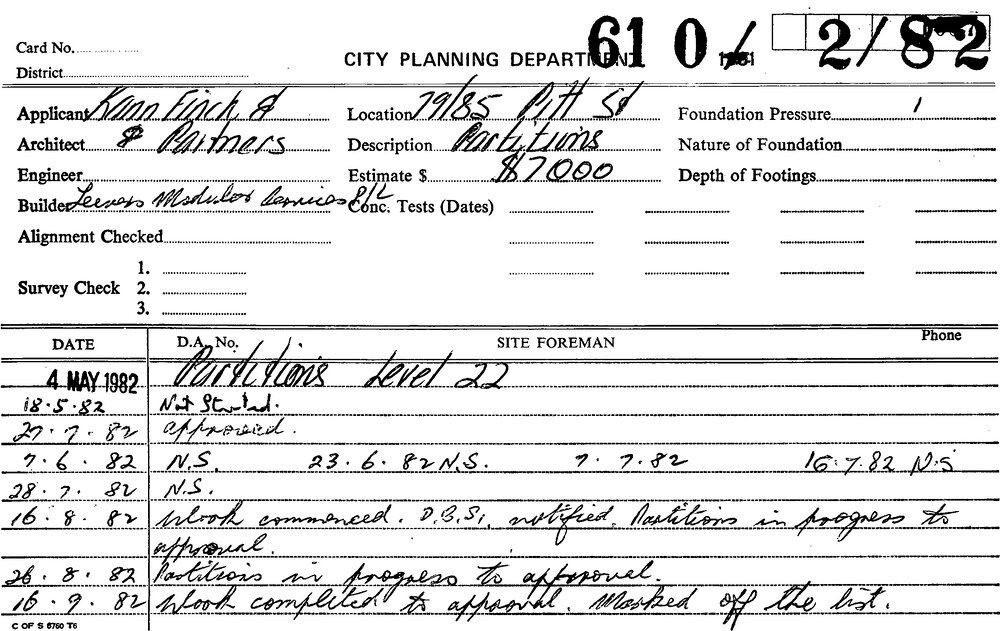 Card No.
District
CITY PLANNING DEPARTMENT
610/ 2/82
Applicant Kann Finch &
Location 79/85 Pitt St
Foundation Pressure
Architect & Partners
Description Partitions
Nature of Foundation
Engineer
Estimate $ $7000
Depth of Footings
Builder Leevers Modular Services P/L
Conc. Tests (Dates)
Alignment Checked
1.
Survey Check 2.
3.
DATE D.A. No. SITE FOREMAN Phone
4 MAY 1982 Partitions Level 22
18.5.82 Not Started.
27.7.82 approved.
7.6.82 N.S. 23.6.82 N.S. 7.7.82 16.7.82 N.S
28.7.82 N.S.
16.8.82 Work commenced. D.B.S. notified. Partitions in progress to
approval.
26.8.82 Partitions in progress to approval.
16.9.82 Work completed to approval. Marked off the list.
C OF S 6760 T6